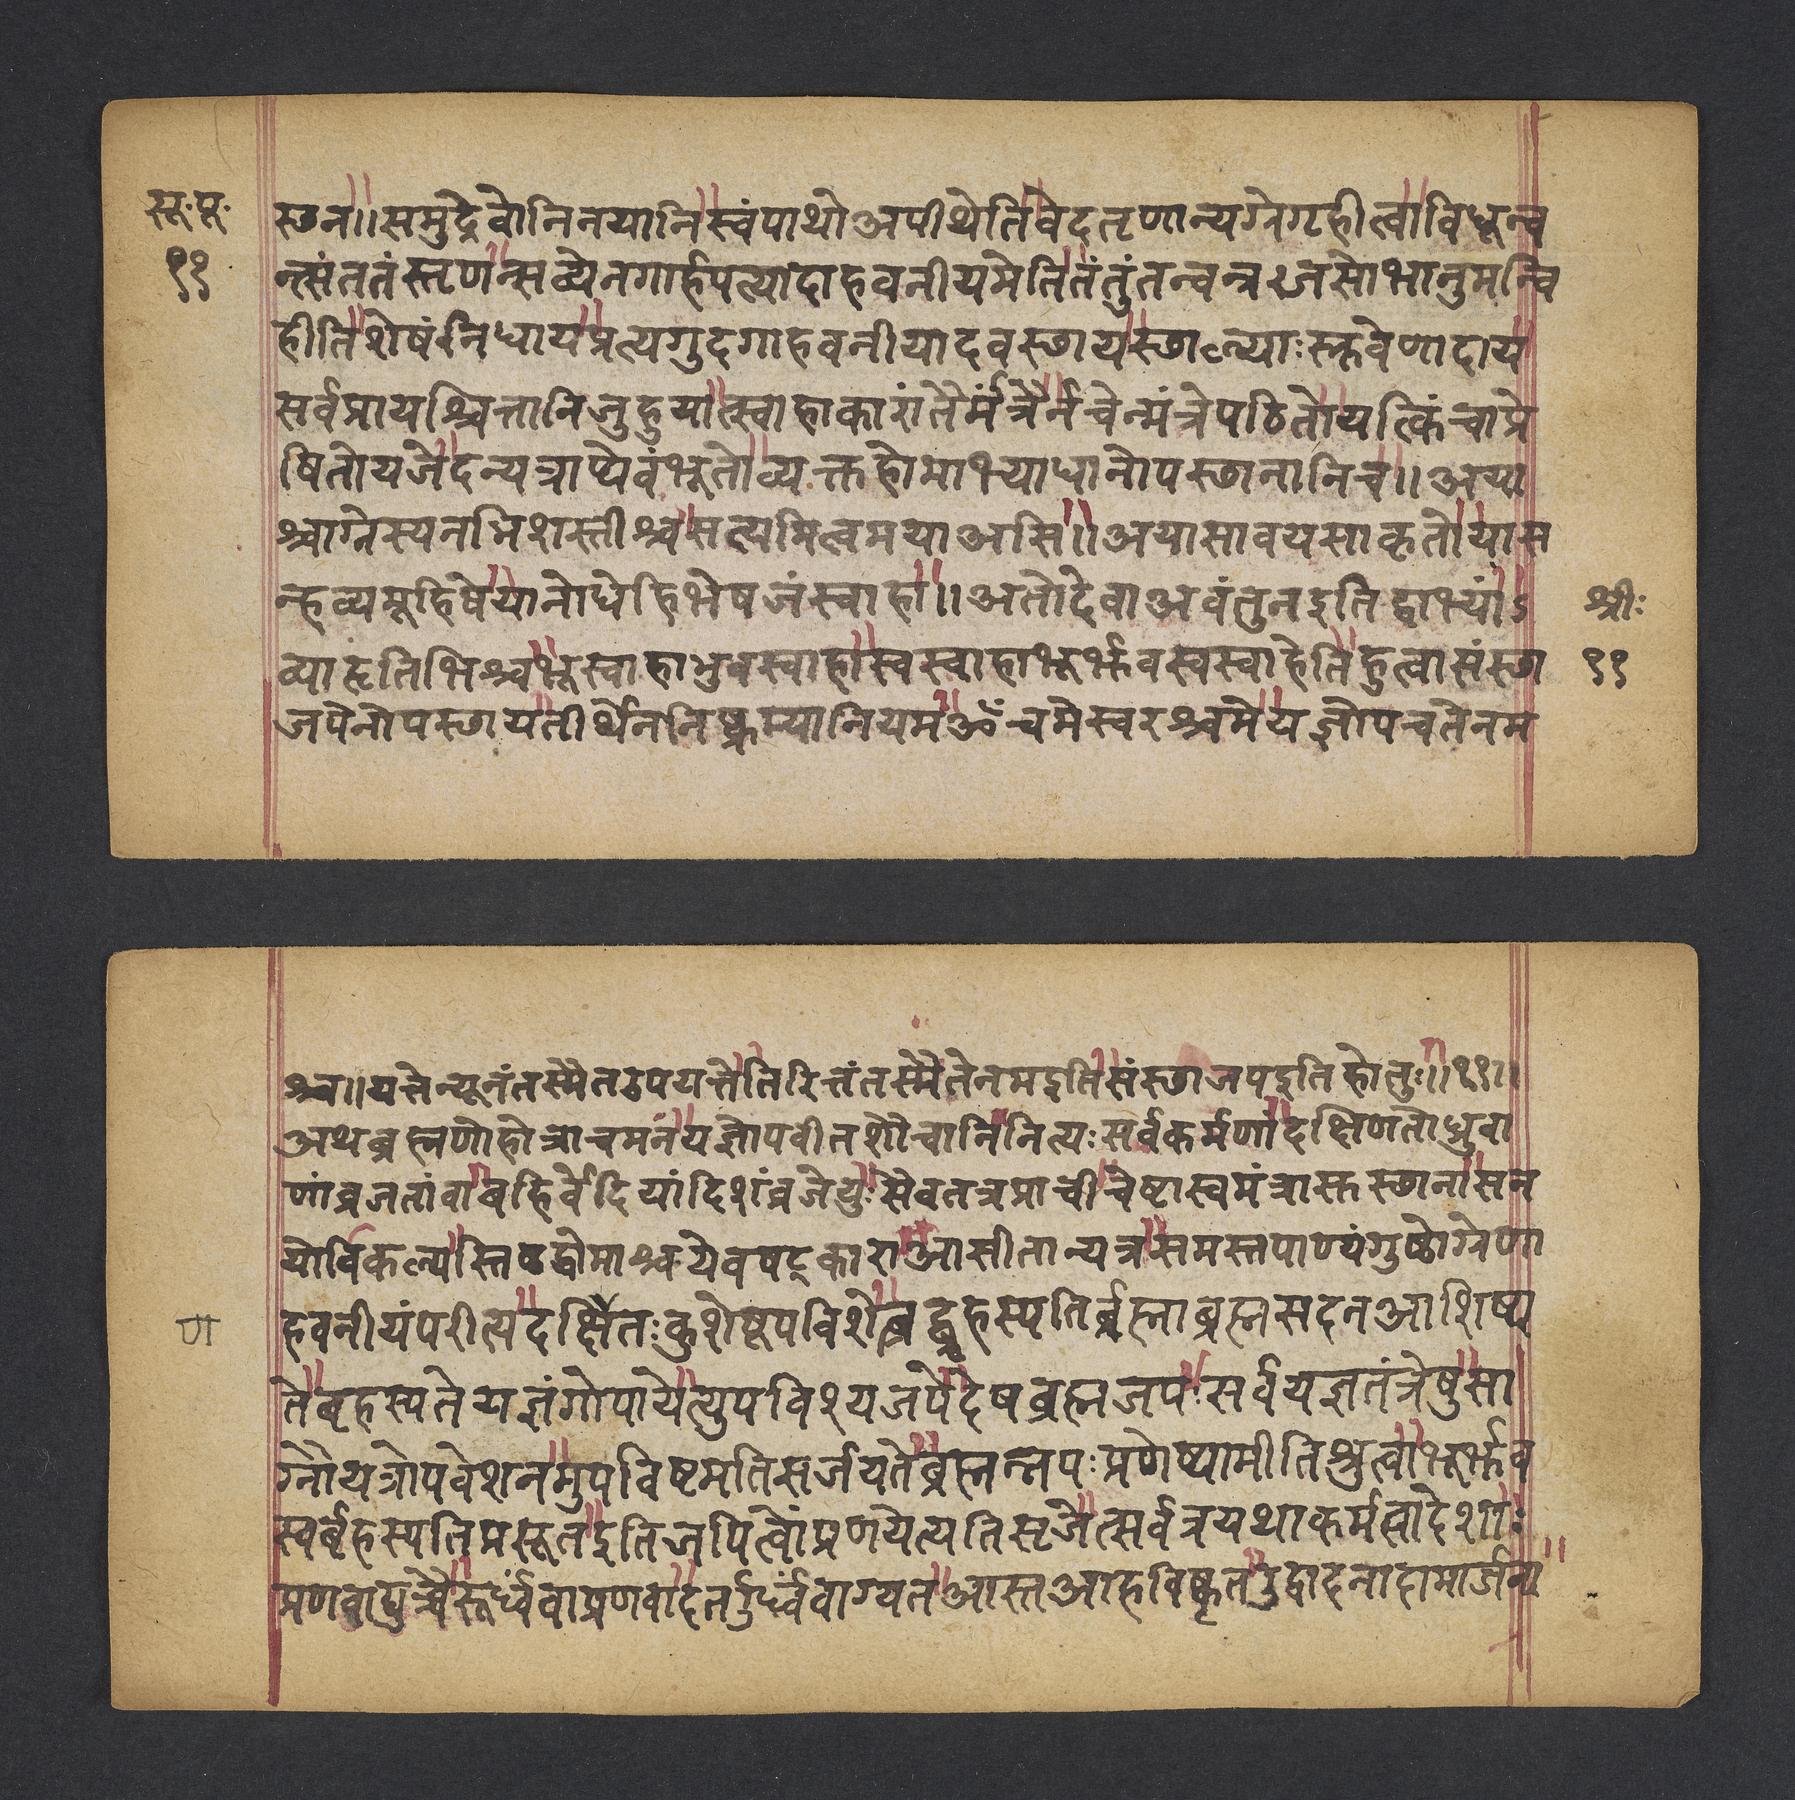 सू॰पू॰
११
स्छन॥समुद्रेवोनिनयानिस्वंपाथोअपीथेतिवेदतृणान्यग्रेगृहीत्वाविधून्व
न्त्संततंस्तृणन्सव्येनगार्हपत्यादाहवनीयमेतितंतुंतन्वन्त्रजसोभानुमन्वि
हीतिशेषंनिधायप्रत्यगुदगाहवनीयादवस्छायस्छाल्याःस्रुवेणादाय
सर्वप्रायश्चित्तानिजुहुयात्स्वाहाकारांतैर्मंत्रैर्नचेन्मंत्रेपठितोयत्किंचाप्रे
षितोयजेदन्यत्राप्येवंभूतोव्यक्तहोमाभ्याधानोपस्छानानिच॥अया
श्चाग्नेस्यनभिशस्तीश्चसत्यमित्वमयाअसि॥अयासावयसाकृतोयास
न्हव्यमूहिषेयानोधेहिभेषजंस्वाहा॥अतोदेवाअवंतुनइतिद्वाभ्यांऽ
व्याहृतिभिश्चभूस्वाहाभुवस्वाहास्वस्वाहाभूर्भुवस्वस्वाहेतिहुत्वासंस्छा
जपेनोपस्छायतीर्थेननिष्क्रम्यानियमॐचमेस्वरश्चमेयज्ञोपचतेनम
श्रीः
११
श्च॥यत्तेन्यूनंतस्मैतउपयत्तेतिरिक्तंतस्मैतेनमइतिसंस्छाजपइतिहोतुः॥११॥
अथब्रह्मणोहोत्राचमनंयज्ञोपवीतशौचानिनित्यःसर्वकर्मणांदक्षिणतोध्रुवा
णांव्रजतांवाबहिर्वेदियांदिशंव्रजेयुःसैवतत्रप्राचीचेष्टास्वमंत्रास्कस्छानासन
योविकल्पस्तिष्ठद्धोमाश्चयेवषट्काराआसीतान्यत्रसमस्तपाण्यंगुष्ठोग्रेणा
हवनीयंपरीत्यदक्षितःकुशेषूपविशेत्बद्बृहस्पतिर्ब्रह्माब्रह्मसदनआशिष्य
ण
तेबृहस्पतेयज्ञंगोपायेत्युपविश्यजपेदेषब्रह्मजपःसर्वयज्ञतंत्रेषुसा
ग्नौयत्रोपवेशनमुपविष्टमतिसर्जयतेब्रह्मन्नपःप्रणेष्यामीतिश्रुत्वाभूर्भुव
स्वर्बृहस्पतिप्रसूतइतिजपित्वोंप्रणयेत्यतिसृजेत्सर्वत्रयथाकर्मत्वादेशाः
प्रणवाद्युच्चैरूर्ध्वंवाप्रणवादतर्ऊर्ध्वंवाग्यतआस्तआहविष्कृतउद्वादनादामार्जना